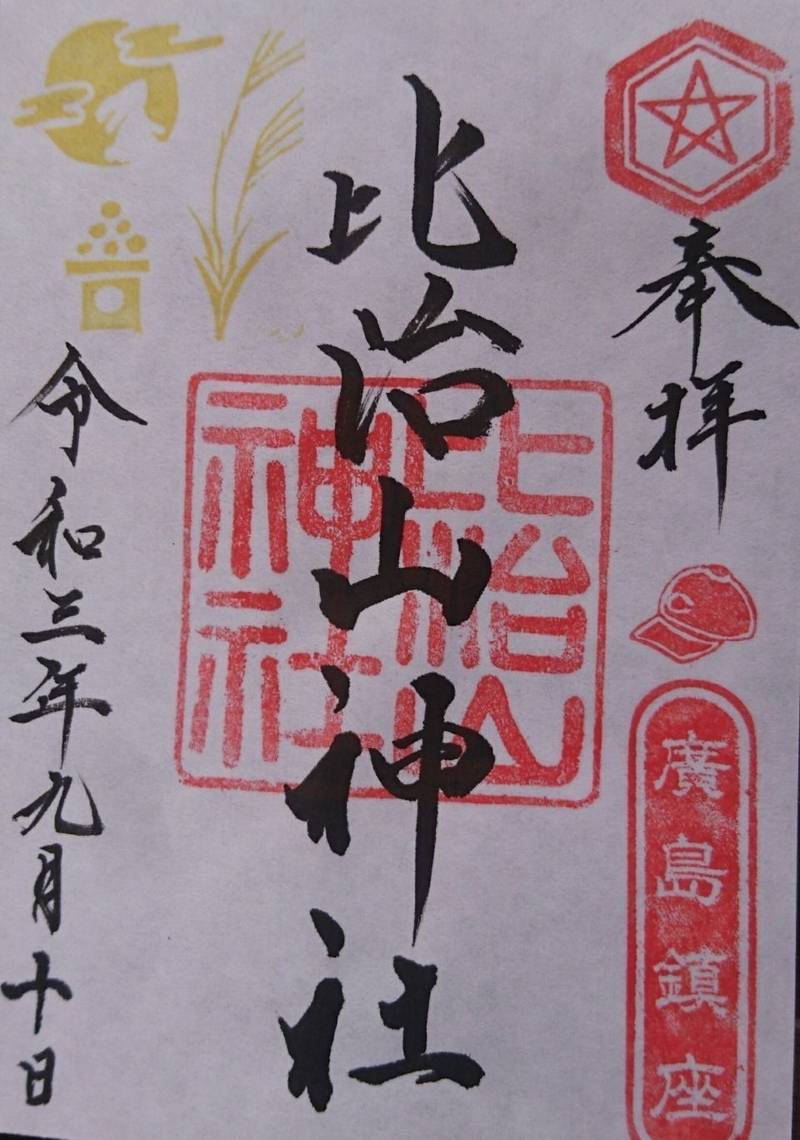 奉拝
廣島鎮座
比治山神社
比治山神社
令和三年九月十日